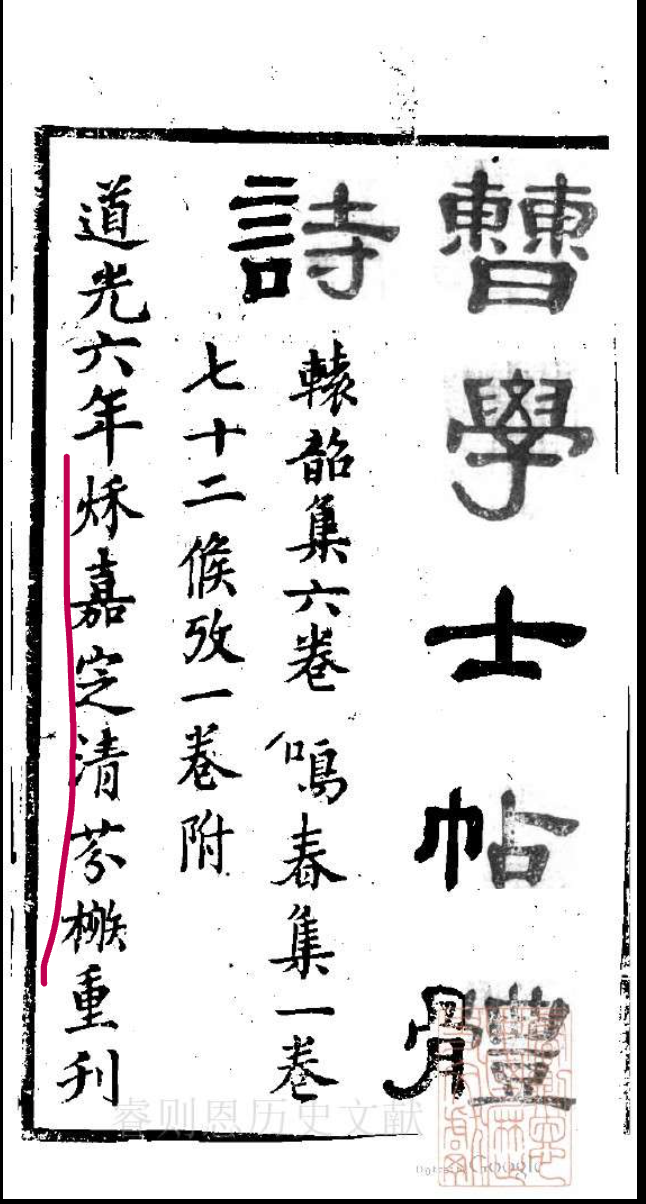 曹學士帖體
詩
轅韶集六卷 鳴春集一卷
七十二候攷一卷附
道光六年秌嘉㝎清芬重刊
睿则恩历史文献
Google